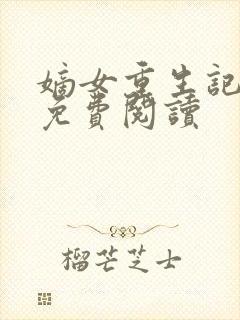 嫡女重生記
免費閱讀
榴芒芝士